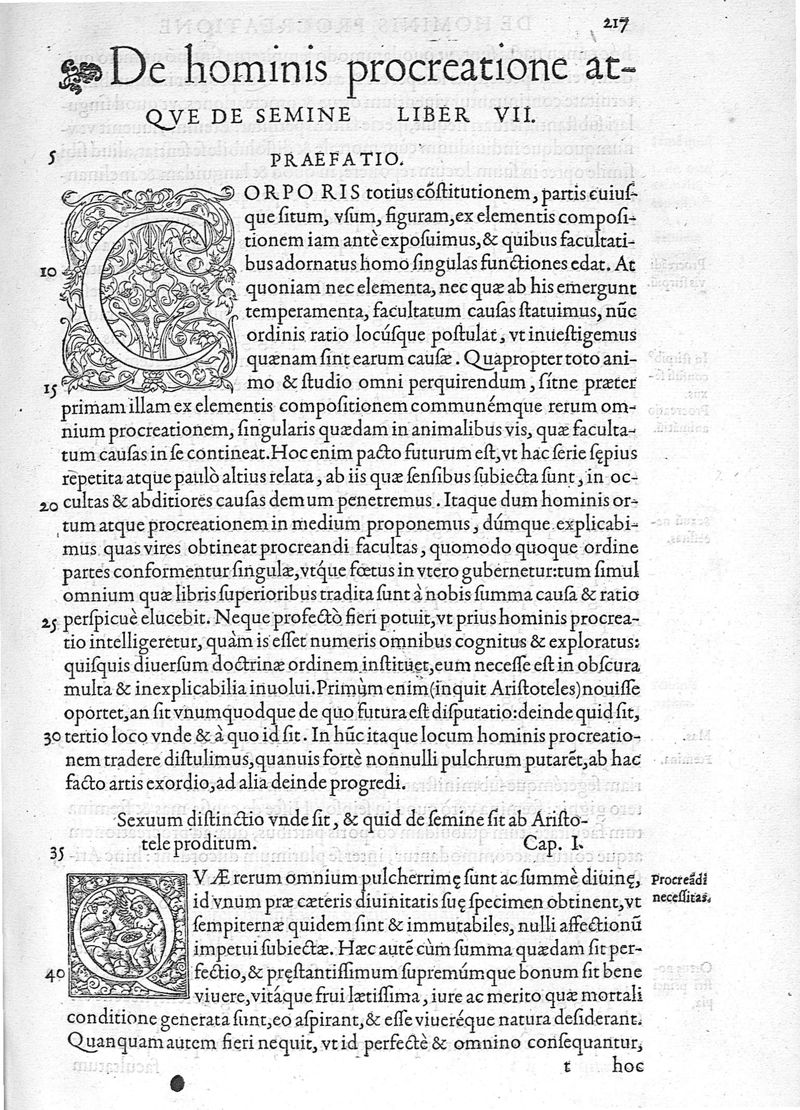 217
De hominis procreatione at-
QVE DE SEMINE LIBER VII.
5
PRAEFATIO.
CORPORIS totius cõstitutionem, partis cuiuſ-
que ſitum, vſum, figuram, ex elementis compoſi-
tionem iam antè expoſuimus, & quibus facultati-
10 bus adornatus homo ſingulas functiones edat. At
quoniam nec elementa, nec quæ ab his emergunt
temperamenta, facultatum cauſas ſtatuimus, nũc
ordinis ratio locúſque poſtulat, vt inueſtigemus
quænam ſint earum cauſæ. Quapropter toto ani-
15 mo & ſtudio omni perquirendum, ſítne præter
primam illam ex elementis compoſitionem communémque rerum om-
nium procreationem, ſingularis quædam in animalibus vis, quæ faculta-
tum cauſas in ſe contineat. Hoc enim pacto futurum eſt, vt hac ſerie ſępius
repetita atque paulò altius relata, ab iis quæ ſenſibus ſubiecta ſunt, in oc-
20 cultas & abditiores cauſas demum penetremus. Itaque dum hominis or-
tum atque procreationem in medium proponemus, dúmque explicabi-
mus quas vires obtineat procreandi facultas, quomodo quoque ordine
partes conformentur ſingulæ, vtq́ue fœtus in vtero gubernetur: tum ſimul
omnium quæ libris ſuperioribus tradita ſunt à nobis ſumma cauſa & ratio
25 perſpicuè elucebit. Neque profectò fieri potuit, vt prius hominis procrea-
tio intelligeretur, quàm is eſſet numeris omnibus cognitus & exploratus:
quiſquis diuerſum doctrinæ ordinem inſtituet, eum neceſſe eſt in obſcura
multa & inexplicabilia inuolui. Primùm enim (inquit Ariſtoteles) nouiſſe
oportet, an ſit vnumquodque de quo futura eſt diſputatio: deinde quid ſit,
30 tertio loco vnde & à quo id ſit. In hũc itaque locum hominis procreatio-
nem tradere diſtulimus, quanuis fortè nonnulli pulchrum putarẽt, ab hac
facto artis exordio, ad alia deinde progredi.
Sexuum diſtinctio vnde ſit, & quid de ſemine ſit ab Ariſto-
35 tele proditum. Cap. I.
QVÆ rerum omnium pulcherrimę ſunt ac ſummè diuinę,
Procreãdi
id vnum præ cæteris diuinitatis ſuę ſpecimen obtinent, vt
neceſſitas.
ſempiternæ quidem ſint & immutabiles, nulli affectionũ
impetui ſubiectæ. Hæc autẽ cùm ſumma quædam ſit per-
40 fectio, & pręſtantiſſimum ſupremúmque bonum ſit bene
viuere, vitáque frui lætiſſima, iure ac merito quæ mortali
conditione generata ſunt, eo aſpirant, & eſſe viueréque natura deſiderant.
Quanquam autem fieri nequit, vt id perfectè & omnino conſequantur,
t hoc